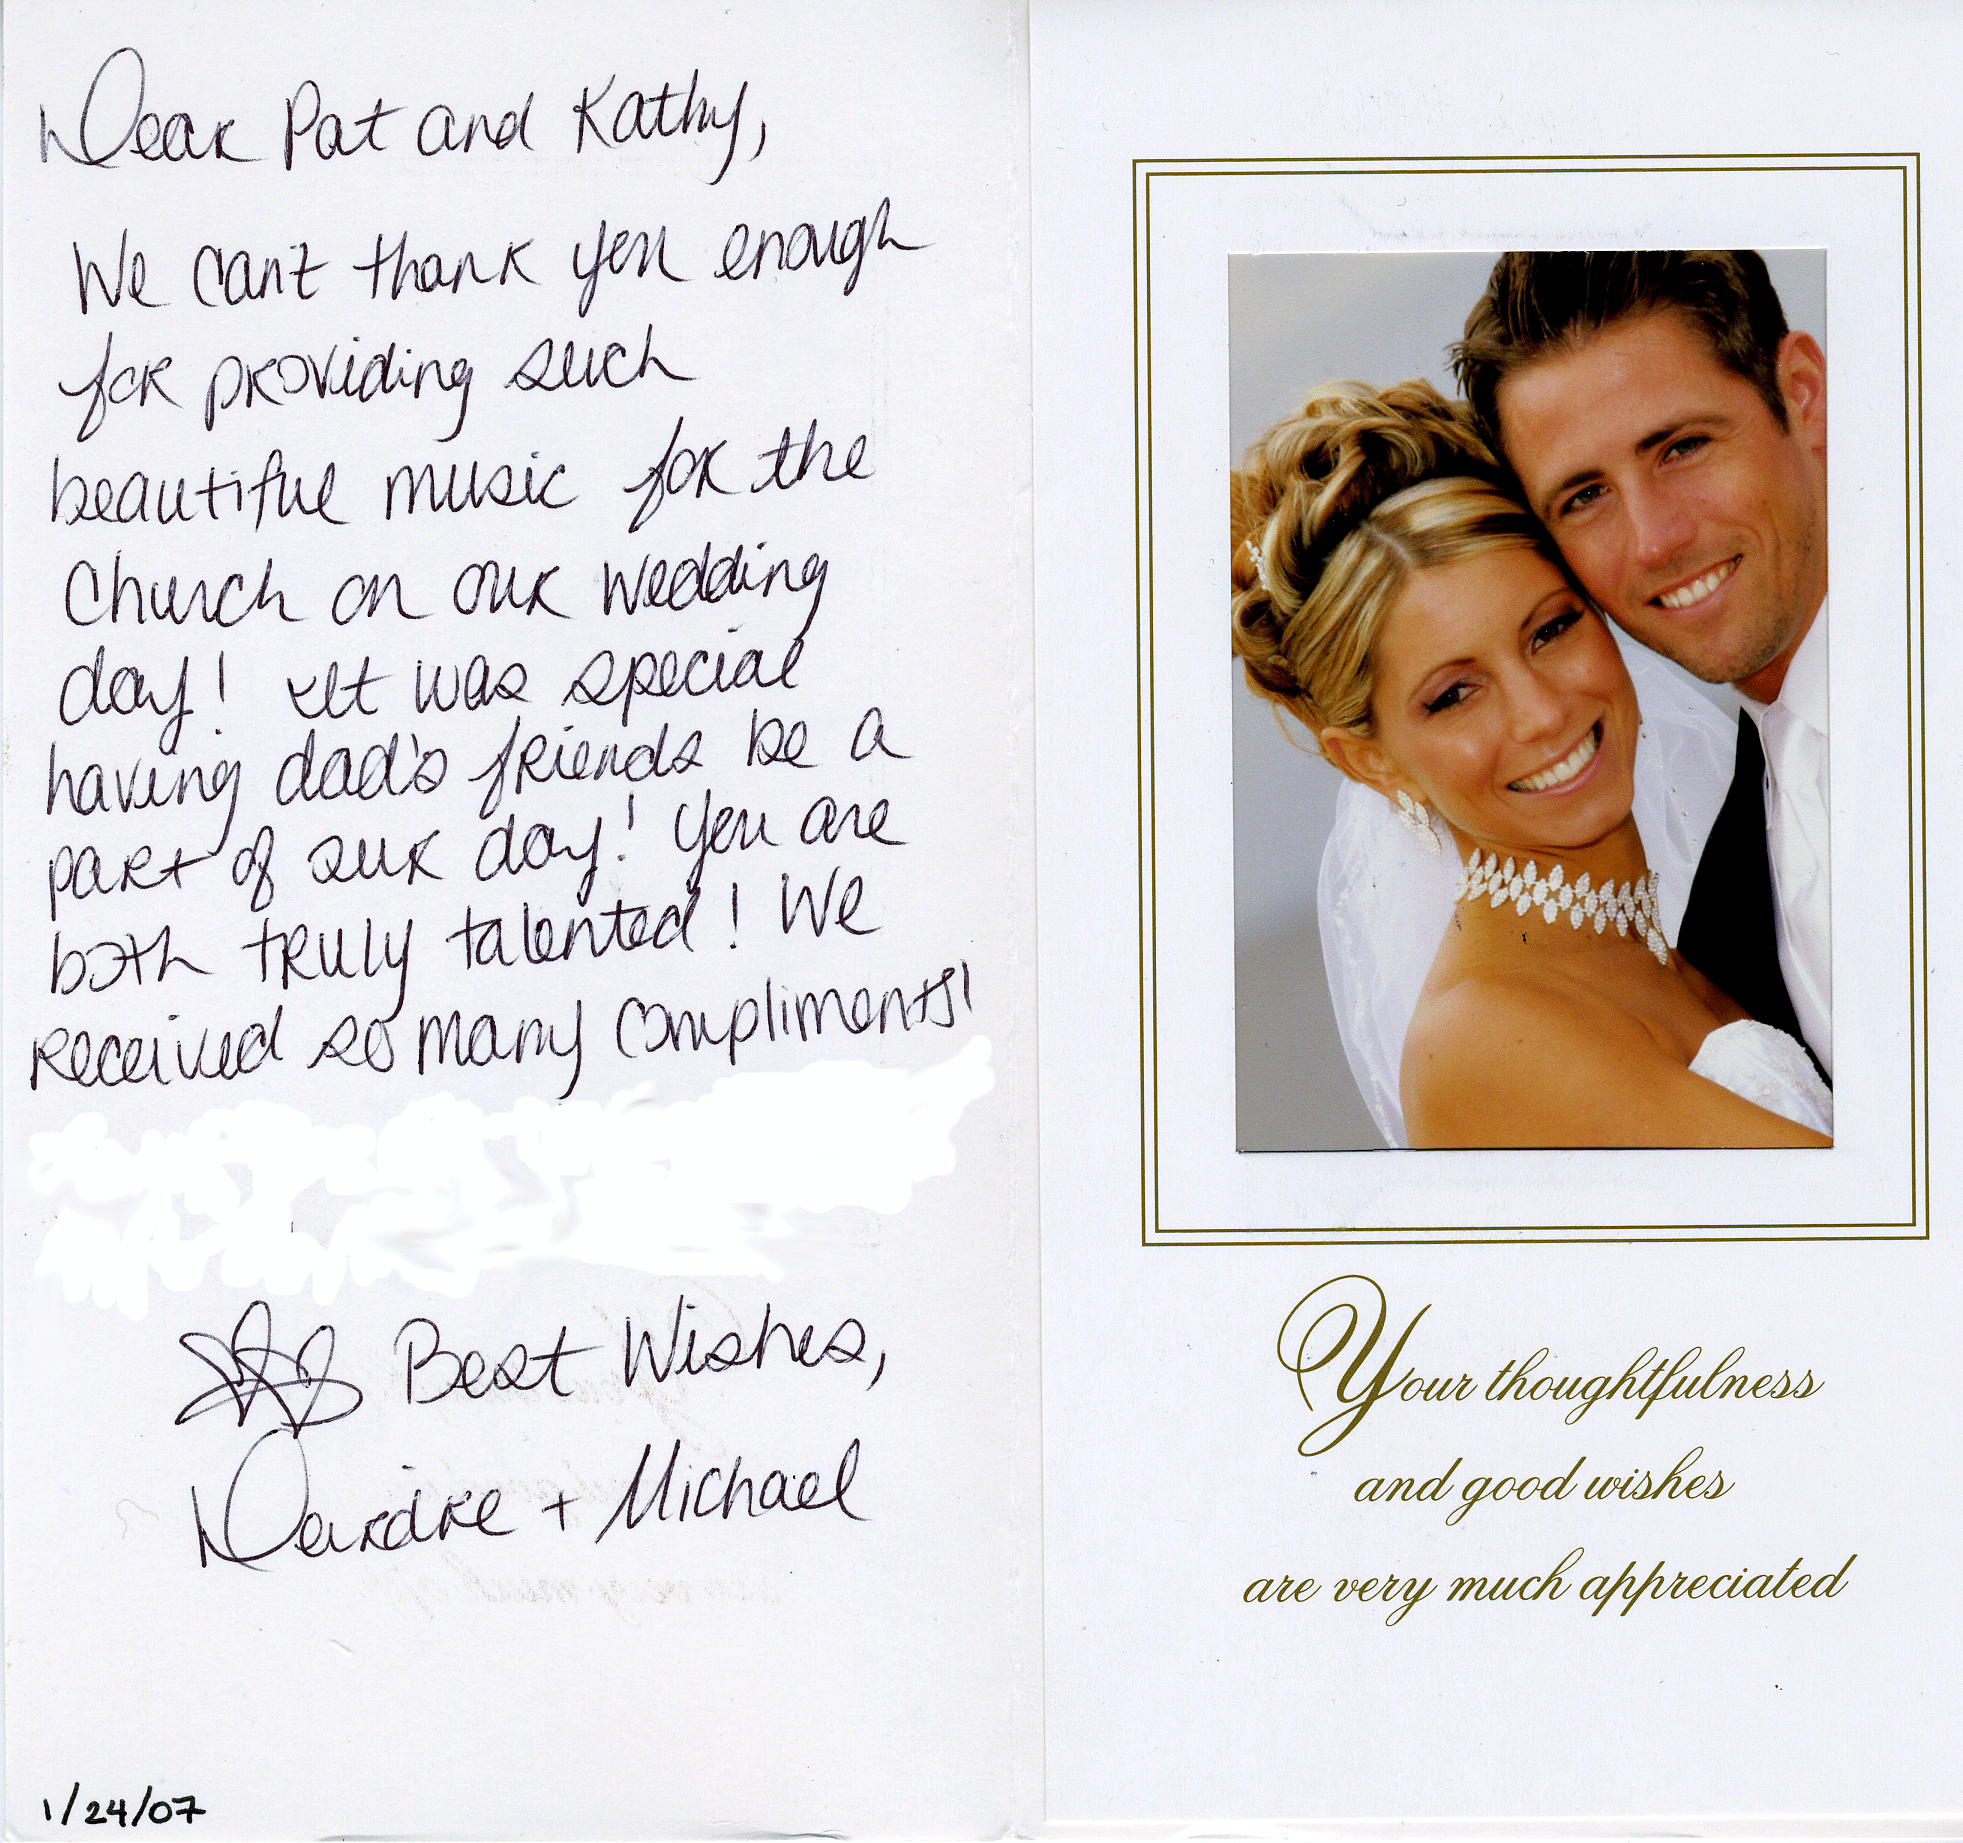 Dear Pat and Kathy,
We can't thank you enough
for providing such
beautiful music for the
Church on our wedding
day! It was special
having dad's friends be a
part of our day! You are
both truly talented! We
received so many compliments!
Best Wishes,
Deirdre + Michael
1/24/07
Your thoughtfulness
and good wishes
are very much appreciated